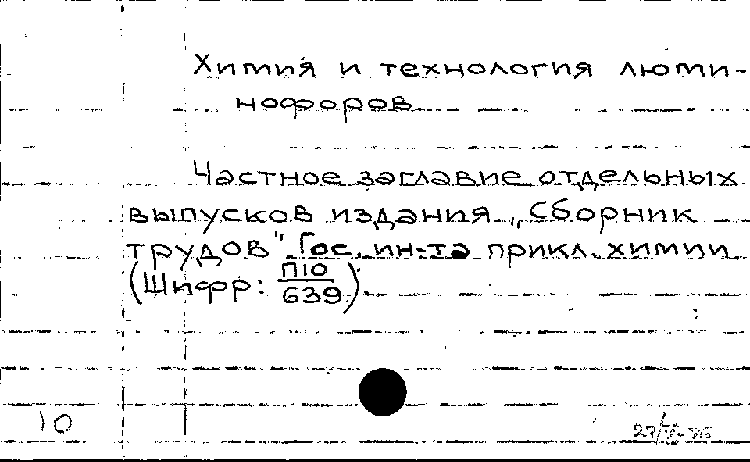 Химия и технология люми-
нофоров
Частное заглавие отдельных
выпусков издания „Сборник
трудов" Гос. ин-та прикл. химии
(Шифр: П10/639).
10